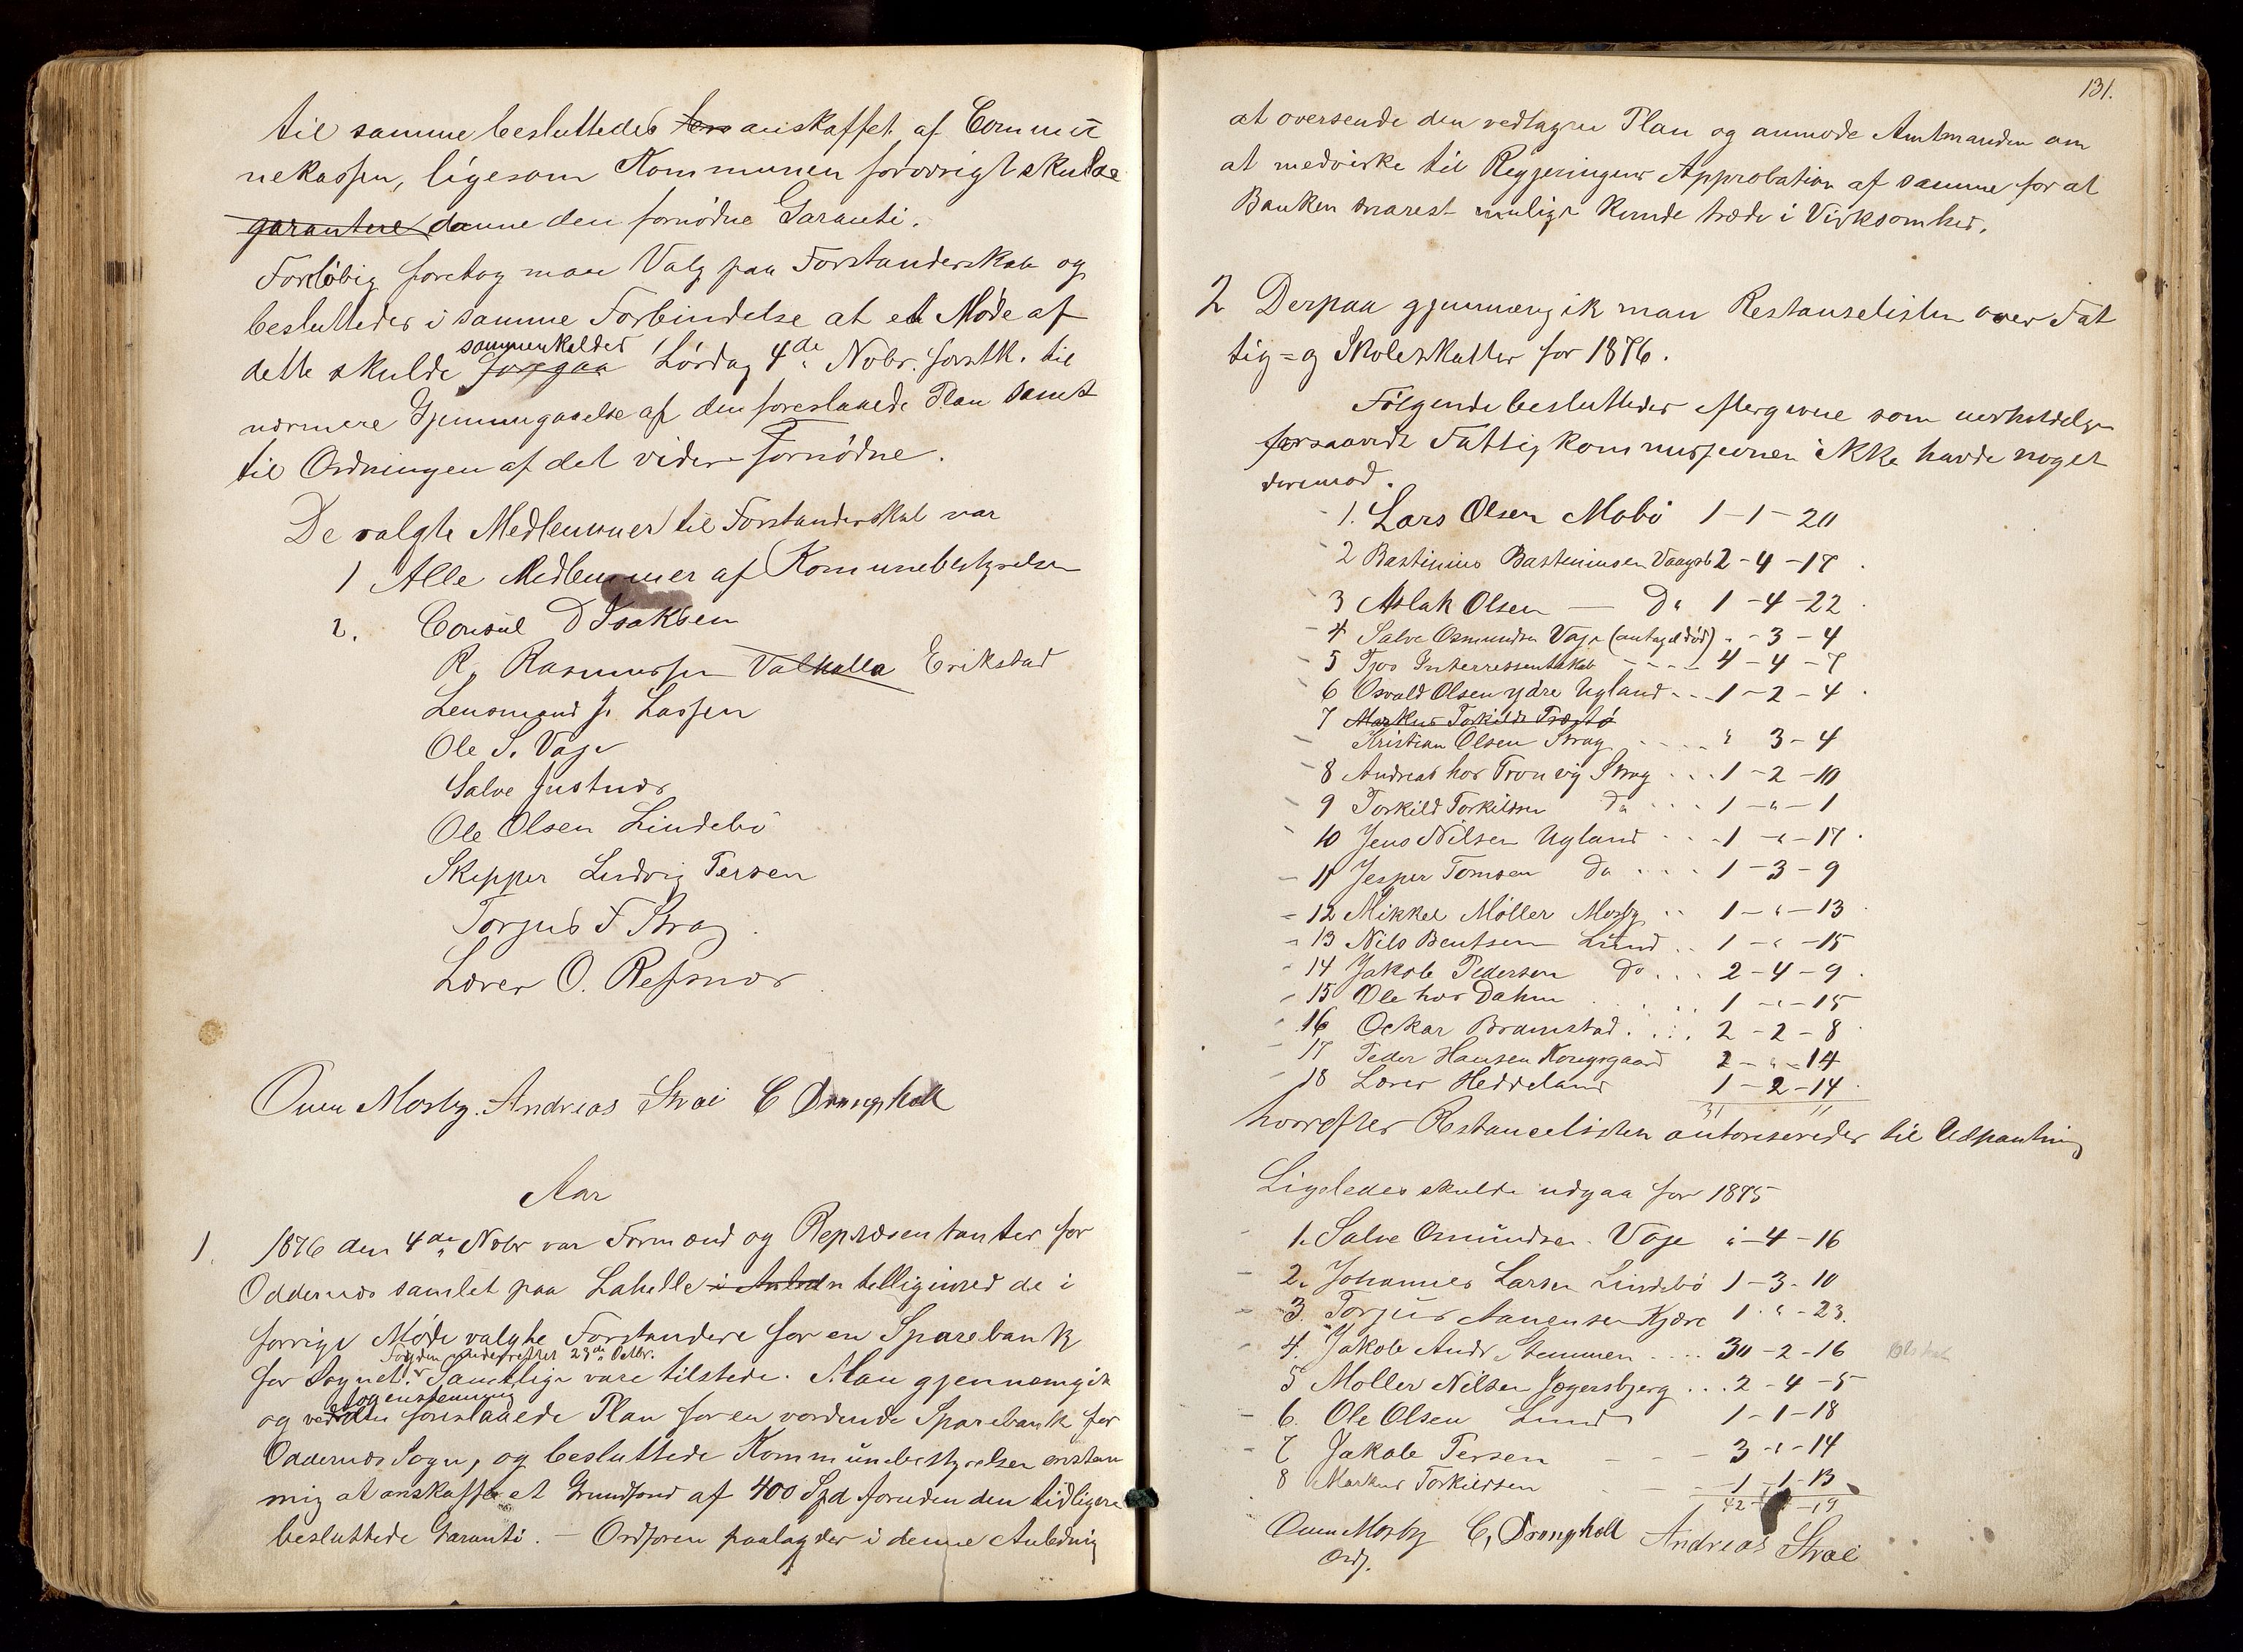 til samme besluttedes anskaffet af Commu
nekassen, ligesom Kommunen forøvrigt skulde
garantere danne den fornødne Garanti.
Foreløbig foretog man Valg paa Forstanderskab og
besluttedes i samme Forbindelse at et Møde af
sammenkaldes
dette skulde foregaa Lørdag 4de Nobr. førstk. til
nærmere Gjennemgaaelse af den foreslaaede Plan samt
til Ordningen af det videre Fornødne.
De valgte Medlemmer til Forstanderskab var
1 Alle Medlemmer af Komunebestyrelsen
2. Consul D Isaksen
R. Rasmussen Valhalla Erikstad
Lensmand J. Lassen
Ole S. Vaje
Salve Justnæs
Ole Olsen Lindebø
Skipper Ludvig Tersen
Torjus F Strag
Lærer O. Refsnæs
Ouen Mosby. Andreas Strai C Drangholt
Aar
1. 1876 den 4de Nobr var Formænd og Repræsentanter for
Oddernæs samlet paa Lahelle i tilligemed de i
forrige Møde valgte Forstandere for en Sparebank
Fogden underrettet 23de Octbr.
for Sognet. Samtlige vare tilstede. Man gjennemgik
og den foreslaaede Plan for en vordende Sparebank for
Oddernæs Sogn, og besluttede Kommunebestyrelsen enstem
mig at anskaffe et Grundfond af 400 Spd foruden den tidligere
besluttede Garanti. – Ordføren paalagdes i denne Anledning
131.
at oversende den vedtagne Plan og anmode Amtmanden om
at medvirke til Regjeringens Approbation af samme for at
Banken snarest mulig kunde træde i Virksomhed.
2 Derpaa gjennemgik man Restanselisten over Fat
tig= og Skoleskatter for 1876.
Følgende besluttedes eftergivne som uerholdelige
forsaavidt Fattigkommissjonen ikke havde noget
derimod.
1. Lars Olsen Mobø 1 – 1 – 20
2 Bastinius Basteniusen Vaagsb 2 – 4 – 17
3 Aslak Olsen — Do 1 – 4 – 22
4 Salve Osmundsen Vaje (antagel død) " – 3 – 4
5 Tjos Interressentskab 4 – 4 – 7
6 Osvald Olsen ydre Ugland 1 – 2 – 4
7 Markus Torkilds
Kristian Olsen Strag " 3 – 4
8 Andreas hos Tronvig Strag 1 – 2 – 10
9 Torkild Torkildsen Do 1 – " – 1
10 Jens Nilsen Ugland 1 – " – 17
11 Jesper Tomsen Do 1 – 3 – 9
12 Mikkel Møller Mosby 1 – " – 13
13 Nils Bentsen Lund 1 – " – 15
14 Jakob Pedersen Do 2 – 4 – 9
15 Ole hos Dahm 1 – " – 15
16 Oskar Bramstad 2 – 2 – 8
17 Peder Hansen Kongsgaard 2 – " – 14
18 Lærer Heddeland 1 – 2 – 14
31 11
hvorefter Restancelisten autoriseredes til Udpantning
Ligeledes skulde udgaa for 1875
1. Salve Osmundsen Vaje " – 4 – 16
2. Johannes Larsen Lindebø 1 – 3 – 10
3. Torjus Aanensen Kjære 1 " – 23
4. Jakob Andr Stemmen 30 – 2 – 16
5 Møller Nilsen Jegersbjerg 2 – 4 – 5
6. Ole Olsen Lund 1 – 1 – 18
7 Jakob Tersen 3 – " – 14
8 Markus Torkildsen 1 – 1 – 13
42 – 19
Ouen Mosby C. Drangholt Andreas Strai
Ordf.